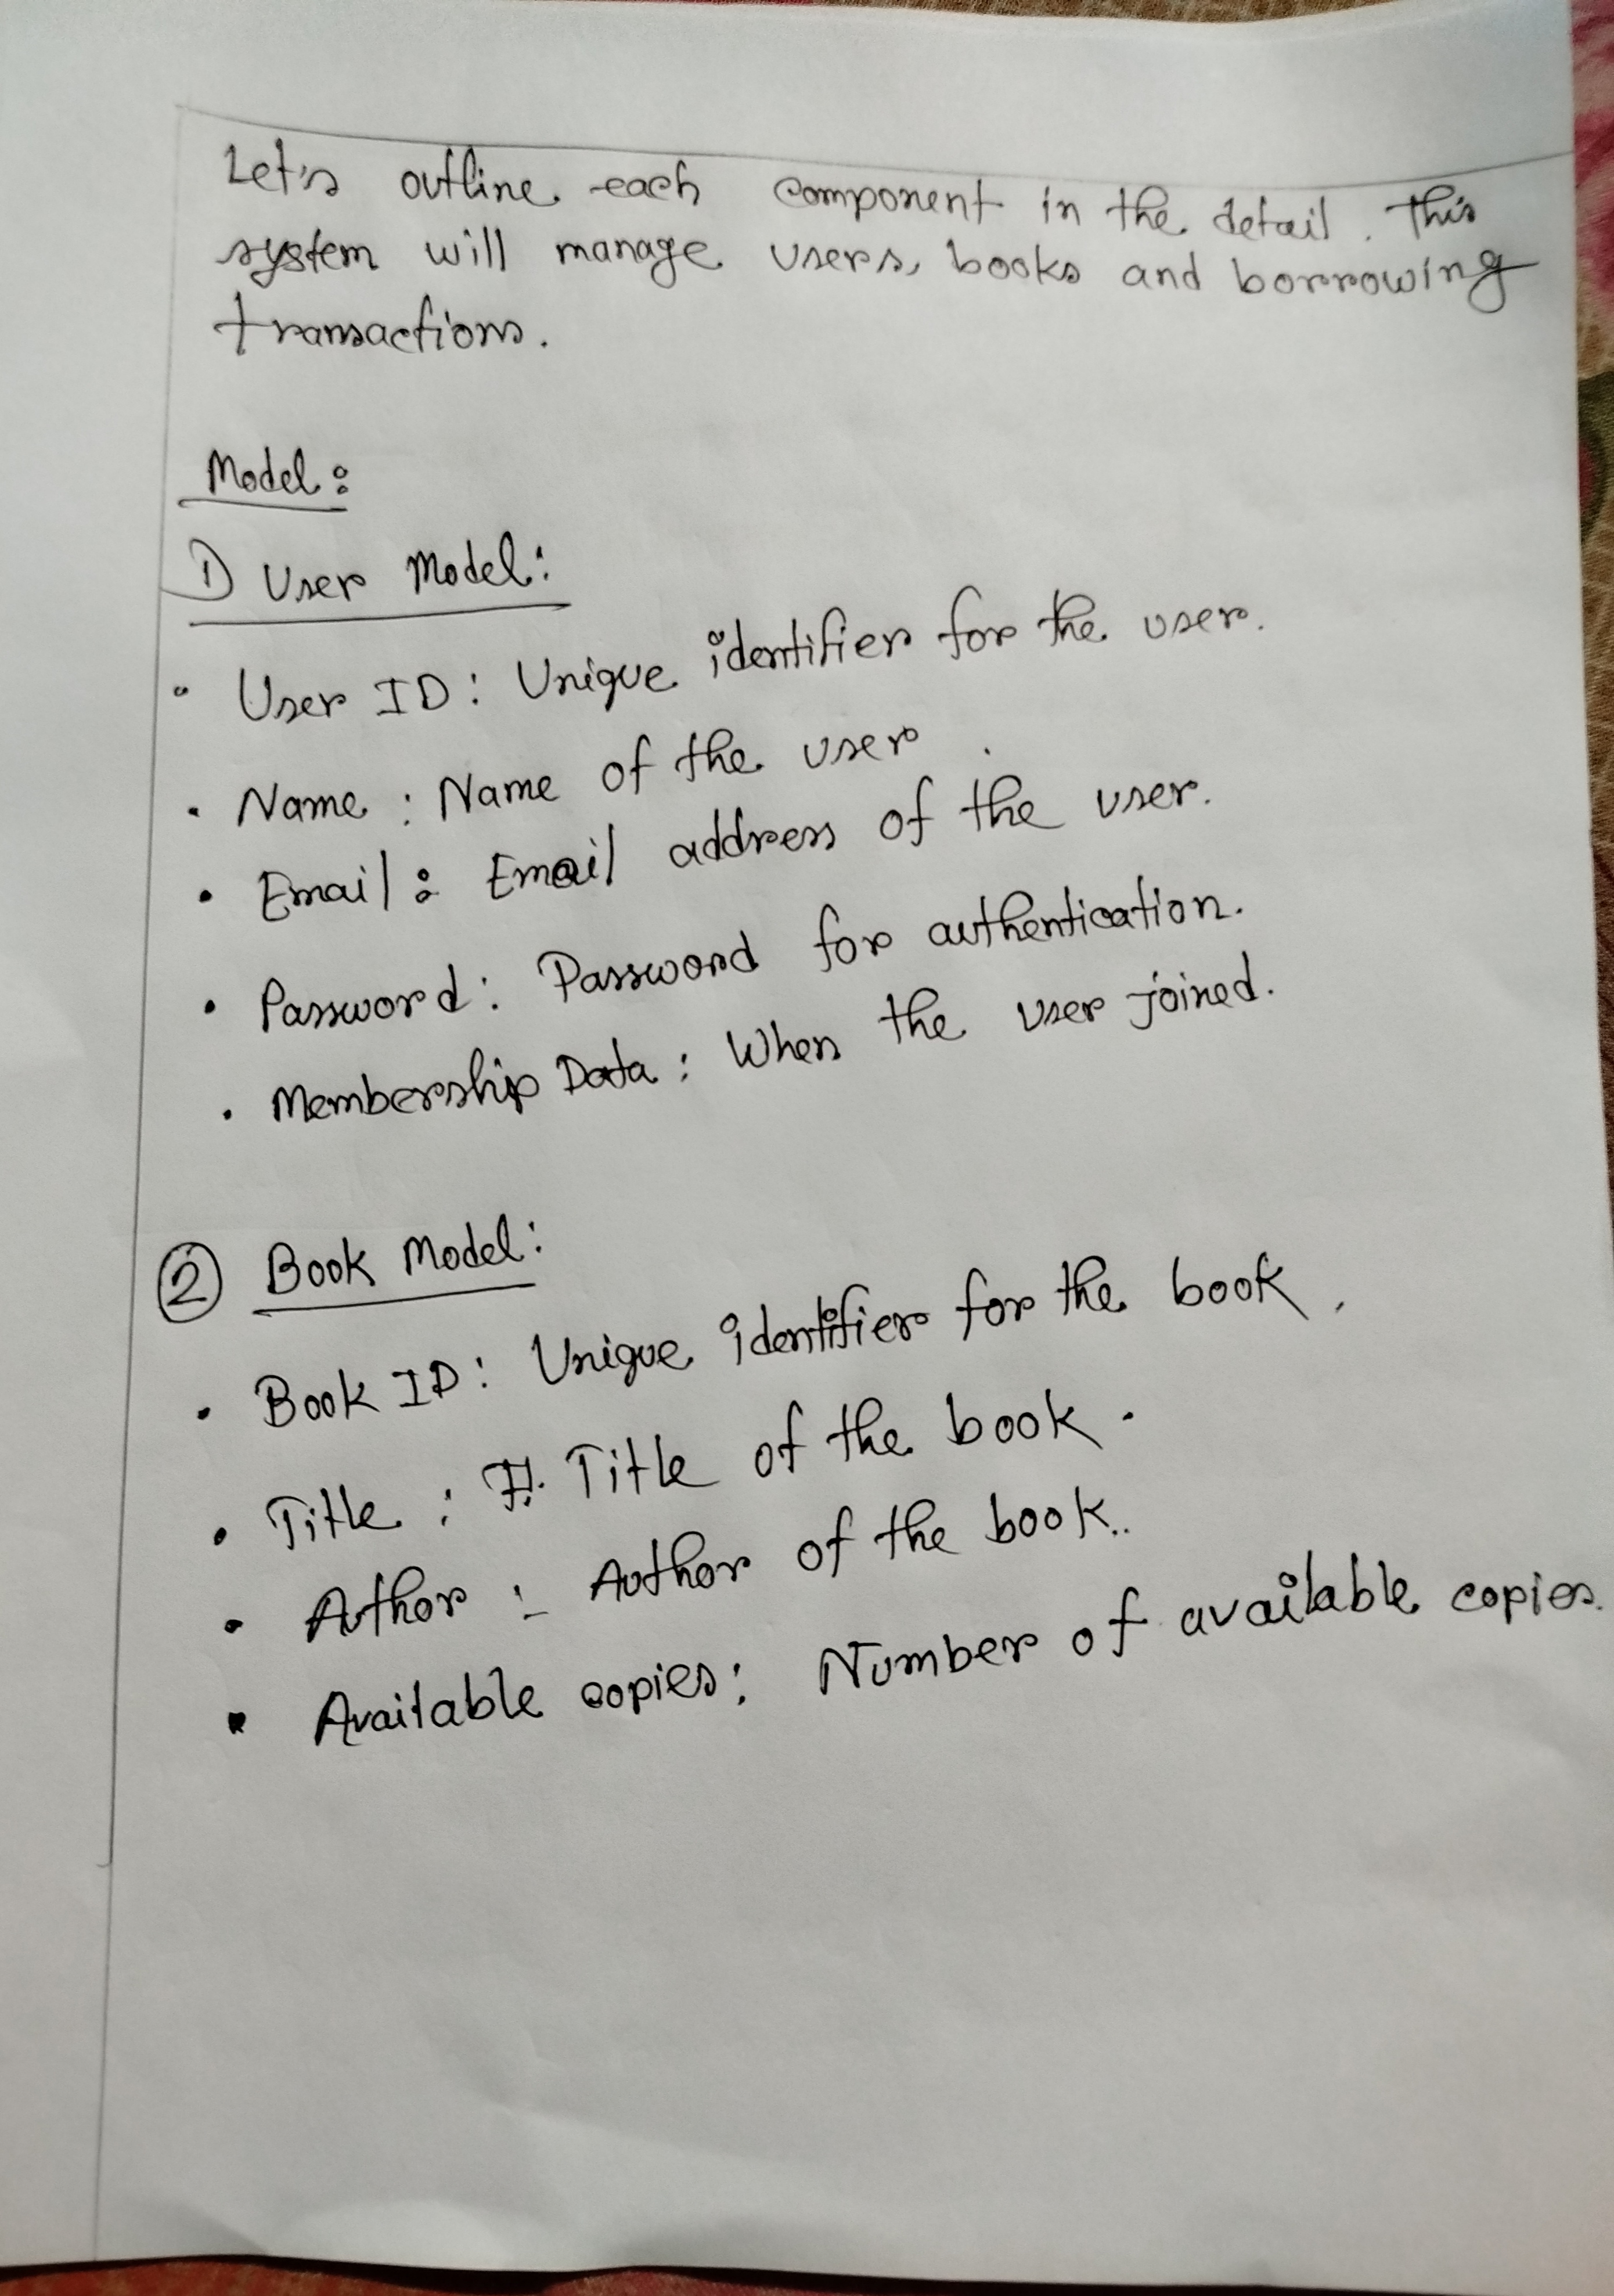 Let's outline each component in the detail. This
system will manage users, books and borrowing
transactions.
Model:
1) User Model:
• User ID: Unique identifier for the user.
• Name: Name of the user.
• Email: Email address of the user.
• Password: Password for authentication.
• Membership Data: When the user joined.
2 Book Model:
• Book ID: Unique identifier for the book.
• Title: Title of the book.
• Author: Author of the book..
• Available copies: Number of available copies.